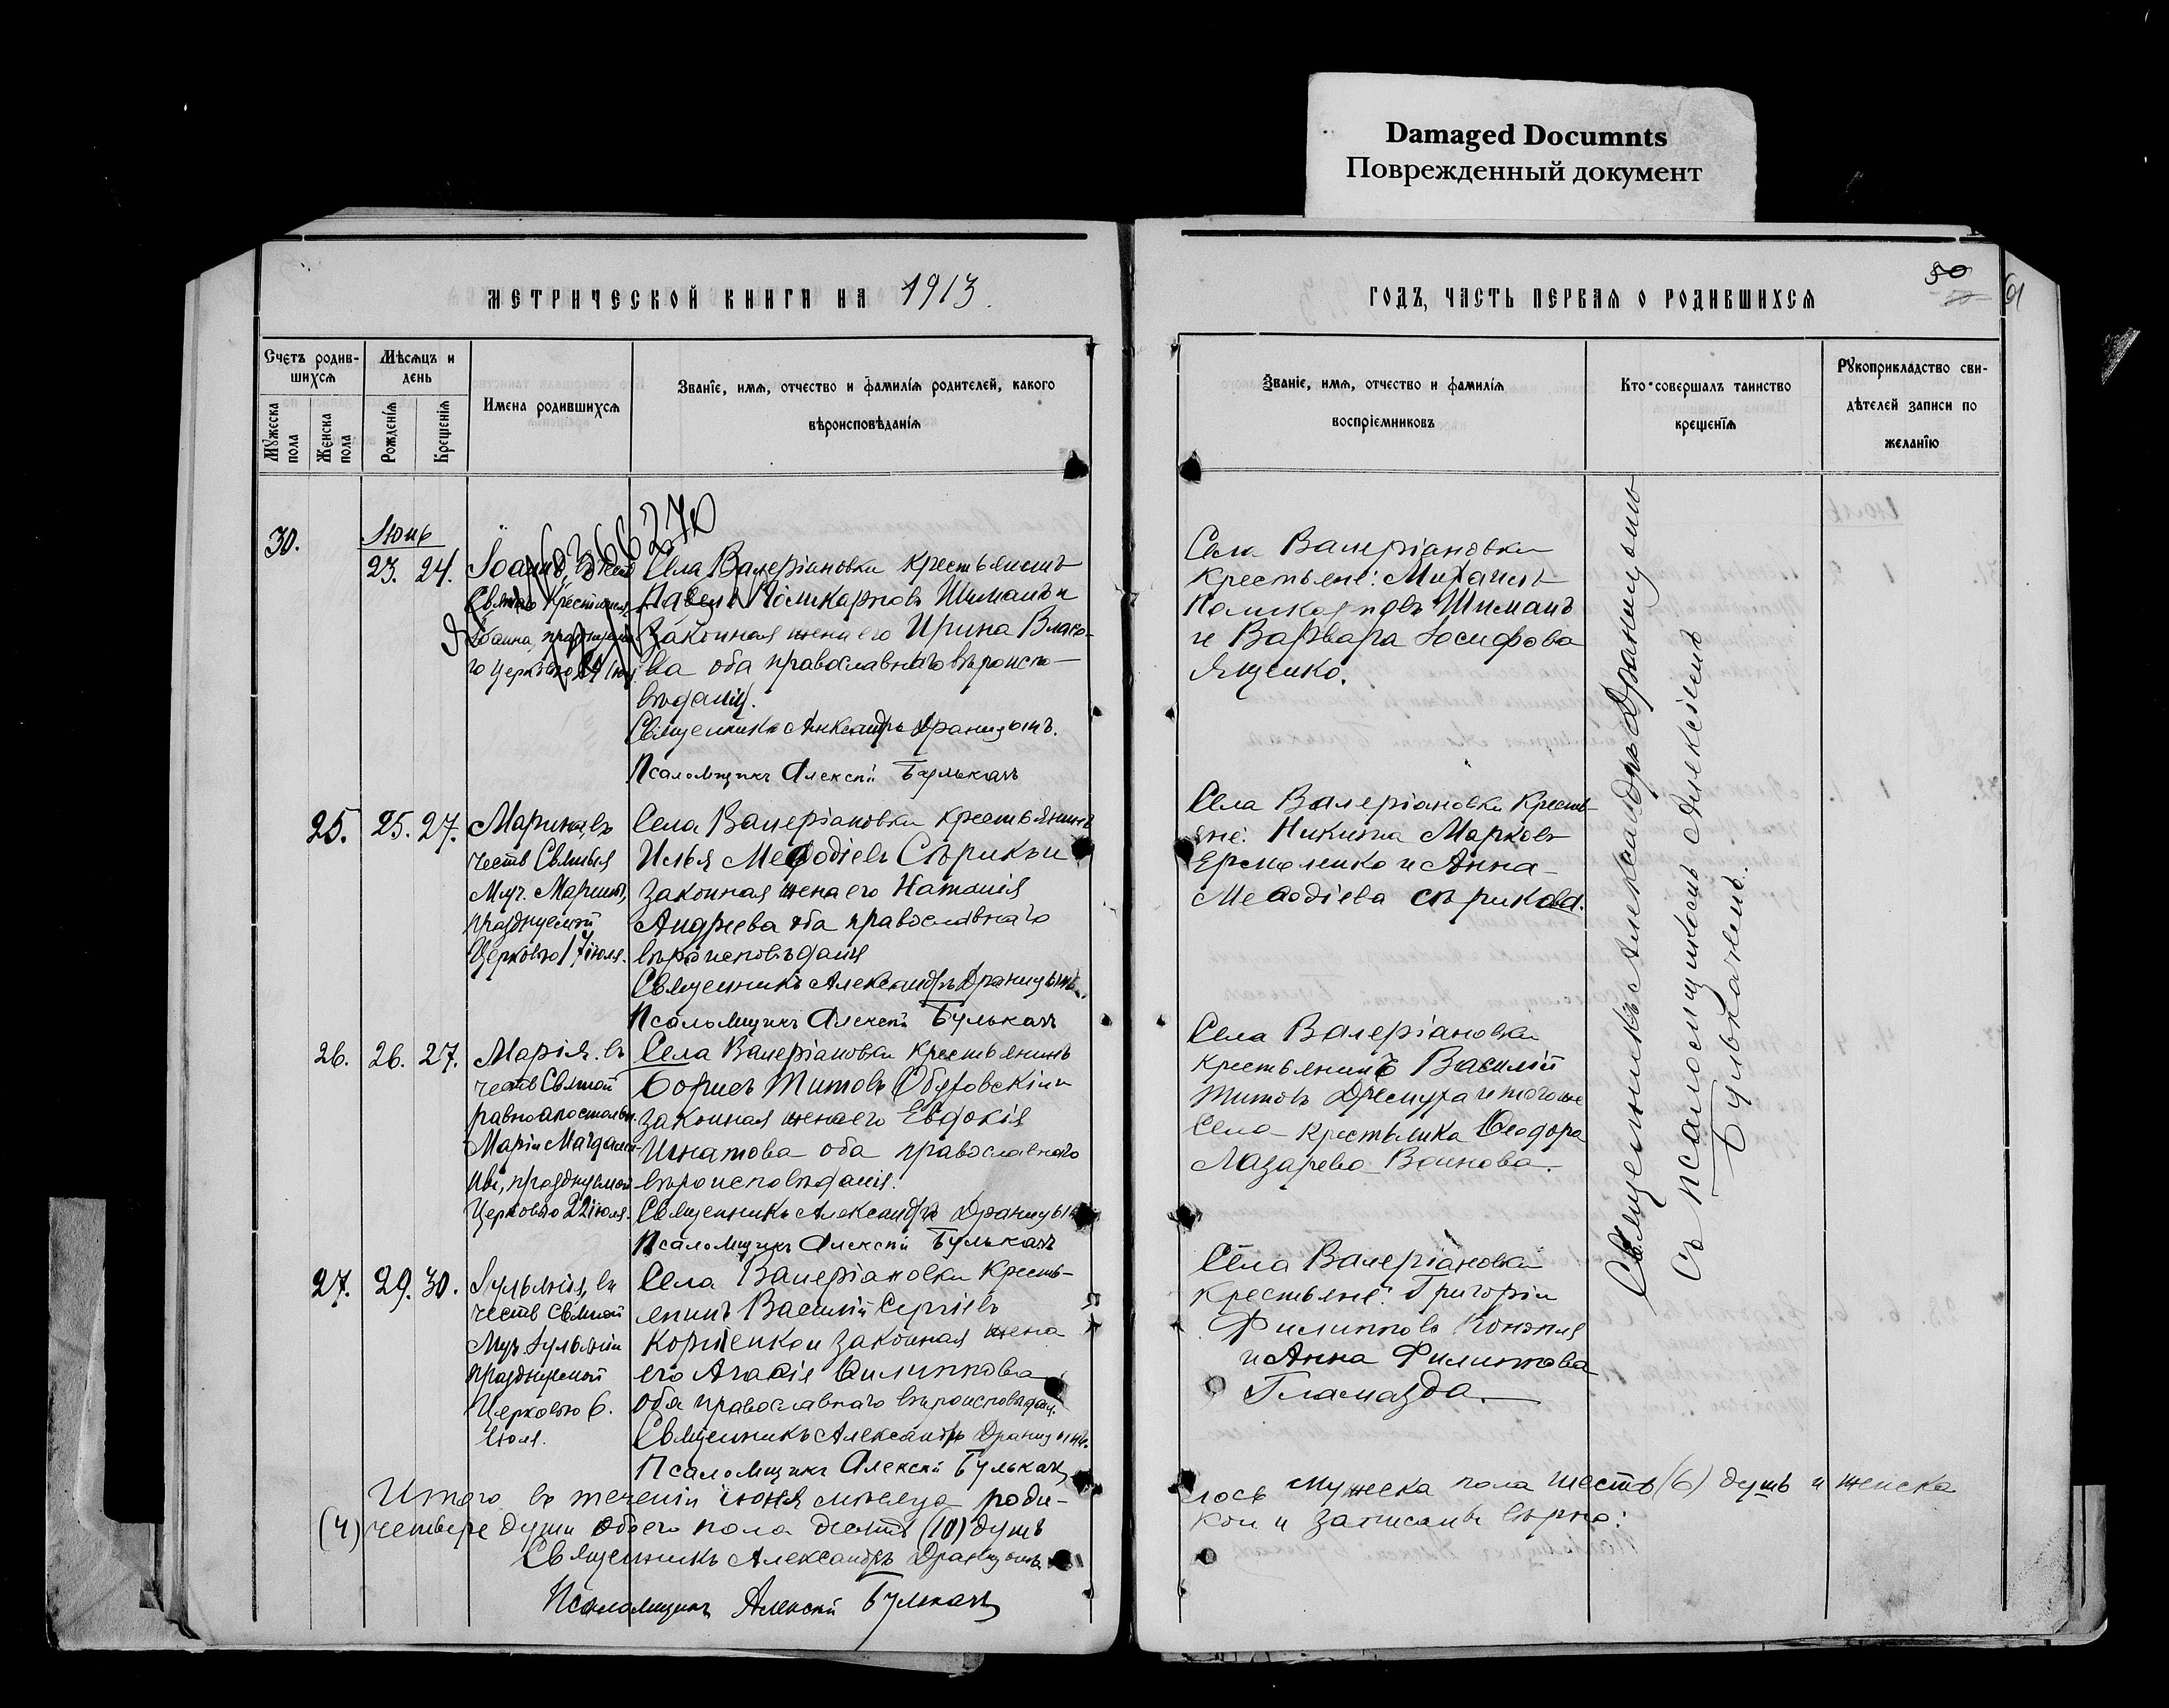 Damaged Documnts
Поврежденный документ
МЕТРИЧЕСКОЙ КНИГИ НА 1913.
Счетъ родив-
шихся
Мѣсяцъ и
день
Мужеска
пола
Женска
пола
Рожденія
Крещенія
Имена родившихся
Званіе, имя, отчество и фамилія родителей, какого
вѣроисповѣданія
30.
Іюнь
23. 24.
Іоаннъ, въ честь
Святаго Крестителя
Іоанна, празднуема-
го Церковью 24 Іюн.
Села Валеріановки крестьянинъ
Павелъ Поликарповъ Шиманъ и
законная жена его Ирина Власо-
ва оба православнаго вѣроиспо-
вѣданія.
Священникъ Александръ Драницынъ.
Псаломщикъ Алексій Булькачъ
25. 25. 27.
Марина, въ
честь Святыя
Муч. Марины,
празднуемой
Церковью 17 іюля.
Села Валеріановки крестьянинъ
Илья Меѳодіевъ Сѣрикъ и
законная жена его Наталія
Андреева оба православнаго
вѣроисповѣданія
Священникъ Александръ Драницынъ.
Псаломщикъ Алексій Булькачъ
26. 26. 27.
Марія. въ
честь Святой
равноапостольн.
Маріи Магдали-
ны, празднуемой
Церковью 22 іюля.
Села Валеріановки крестьянинъ
Борисъ Титовъ и
законная жена его Евдокія
Игнатова оба православнаго
вѣроисповѣданія.
Священникъ Александръ Драницынъ
Псаломщикъ Алексій Булькачъ
27. 29. 30.
Іульянія, въ
честь Святой
Муч. Іульяніи
празднуемой
Церковью 6.
Іюля.
Села Валеріановки Кресть-
янинъ Василій Сергіевъ
и законная жена
его Агаѳія Филиппова
оба православнаго вѣроисповѣдан.
Священникъ Александръ Драницынъ.
Псаломщикъ Алексій Булькачъ
Итого въ теченіи іюня мѣсяца роди-
(4) четыре души обоего пола десять (10) душъ
Священникъ Александръ Драницынъ
Псаломщикъ Алексій Булькачъ
50
ГОДЪ, ЧАСТЬ ПЕРВАЯ О РОДИВШИХСЯ
Званіе, имя, отчество и фамилія
воспріемниковъ
Кто совершалъ таинство
крещенія
Рукоприкладство сви-
дѣтелей записи по
желанію
Села Валеріановки
Крестьяне: Михаилъ
Поликарповъ Шиманъ
и Варвара Іосифова
Ященко.
Села Валеріановки Кресть-
яне: Никита Марковъ
Ермоленко и Анна
Меѳодіева Сѣрикова.
Села Валеріановки
крестьянинъ Василій
Титовъ и того же
Села крестьянка Ѳеодора
Лазарева Воинова.
Села Валеріановки
крестьяне: Григорій
Филипповъ Конопля
и Анна Филиппова
Гламазда.
Священникъ Александръ Драницынъ
съ псаломщикомъ Алексіемъ
Булькачемъ.
лось мужеска пола шесть (6) душъ и женска
кои и записаны вѣрно: